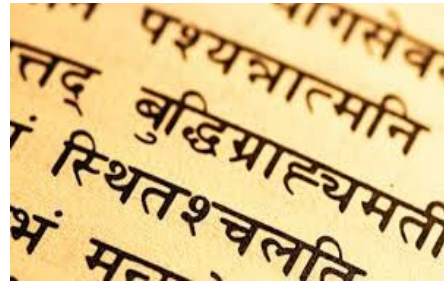 पश्यन्नात्मनि
त्तद् बुद्धिग्राह्यमती
स्थितश्चलति
भं